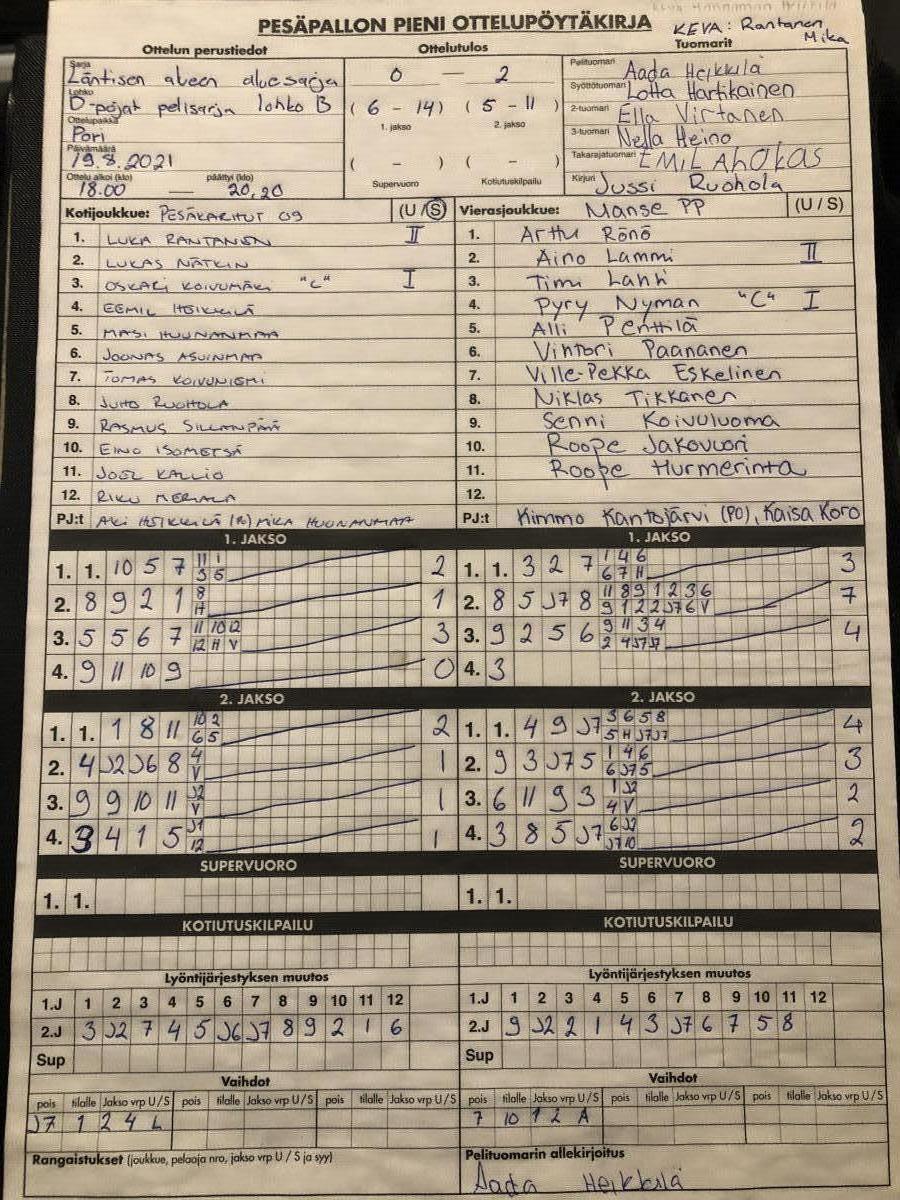 PESÄPALLON PIENI OTTELUPÖYTÄKIRJA
KEVA: Rantanen Mika
Ottelun perustiedot
Ottelutulos
Tuomarit
Sarja Läntisen alueen aluesarja
Lohko D-pojat pelisarja lohko B
Ottelupaikka Pori
Päivämäärä 19.8.2021
Ottelu alkoi (klo) päättyi (klo)
18.00 — 20,20
0 — 2
(6 - 14) (5 - 11)
1. jakso 2. jakso
( - ) ( - )
Supervuoro Kotiutuskilpailu
Pelituomari Aada Heikkilä
Syöttötuomari Lotta Hartikainen
2-tuomari Ella Virtanen
3-tuomari Nella Heino
Takarajatuomari EMIL AhOKAS
Kirjuri Jussi Ruohola
Kotijoukkue: PESÄKARHUT 09 (U/S)
1. LUKA RANTANEN II
2. LUKAS NÄTKIN
3. OSKARI KOIVUMÄKI "C" I
4. EEMIL HEIKKILÄ
5. MASI HUUNANMAA
6. JOONAS ASUINMAA
7. TOMAS KOIVUNIEMI
8. JUHO RUOHOLA
9. RASMUS SILLANPÄÄ
10. EINO ISOMETSÄ
11. JOEL KALLIO
12. RIKU MERIALA
PJ:t AKI HEIKKILÄ (PJ) MIKA HUUNANMAA
Vierasjoukkue: Manse PP (U/S)
1. Arttu Rönö
2. Aino Lammi II
3. Timi Lahti
4. Pyry Nyman "C" I
5. Alli Penttilä
6. Vihtori Paananen
7. Ville-Pekka Eskelinen
8. Niklas Tikkanen
9. Senni Koivuluoma
10. Roope Jakovuori
11. Roope Hurmerinta
12.
PJ:t Kimmo Kantojärvi (PO), Kaisa Koro
1. JAKSO
1. 1. 10 5 7 11 1 2
3 5
2. 8 9 2 1 8 1
H
3. 5 5 6 7 11 10 12 3
12 H V
4. 9 11 10 9 0
1. JAKSO
1. 1. 3 2 7 1 4 6 3
6 7 H
2. 8 5 J7 8 11 8 9 1 2 3 6 7
9 1 2 2 J7 6 V
3. 9 2 5 6 9 11 3 4 4
2 4 J7 J7
4. 3
2. JAKSO
1. 1. 1 8 11 10 2 2
6 5
2. 4 J2 J6 8 4 1
V
3. 9 9 10 11 J2 1
V
4. 3 4 1 5 J1 1
12
2. JAKSO
1. 1. 4 9 J7 3 6 5 8 4
5 H J7 J7
2. 9 3 J7 5 1 4 6 3
6 J7 5
3. 6 11 9 3 1 J2 2
4 V
4. 3 8 5 J7 6 J2 2
J7 10
SUPERVUORO
1. 1.
SUPERVUORO
1. 1.
KOTIUTUSKILPAILU
KOTIUTUSKILPAILU
Lyöntijärjestyksen muutos
1.J 1 2 3 4 5 6 7 8 9 10 11 12
2.J 3 J2 7 4 5 J6 J7 8 9 2 1 6
Sup
Lyöntijärjestyksen muutos
1.J 1 2 3 4 5 6 7 8 9 10 11 12
2.J 9 J2 2 1 4 3 J7 6 7 5 8
Sup
Vaihdot
pois tilalle Jakso vrp U/S pois tilalle Jakso vrp U/S pois tilalle Jakso vrp U/S
J7 1 2 4 L
Vaihdot
pois tilalle Jakso vrp U/S pois tilalle Jakso vrp U/S pois tilalle Jakso vrp U/S
7 10 1 2 A
Rangaistukset (joukkue, pelaaja nro, jakso vrp U/S ja syy)
Pelituomarin allekirjoitus
Aada Heikkilä